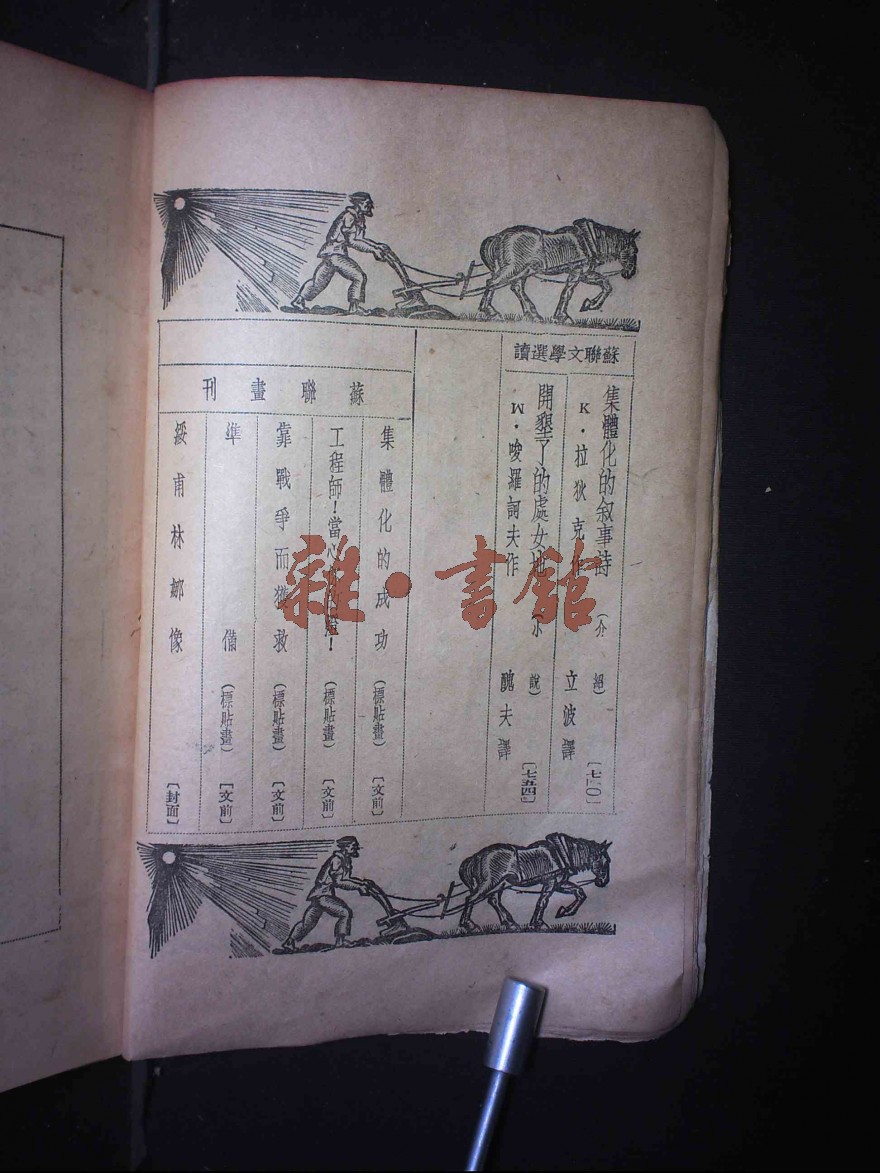 蘇聯文學選讀
集體化的叙事詩(介紹)
K·拉狄克作 立波譯[七一〇]
開墾了的處女地(小說)
M·唆羅訶夫作 醜夫譯[七五四]
蘇聯畫刊
集體化的成功(標貼畫)[文前]
工程師!當心!(標貼畫)[文前]
靠戰爭而獲救(標貼畫)[文前]
準備(標貼畫)[文前]
綏甫林娜像[封面]
雜·書館